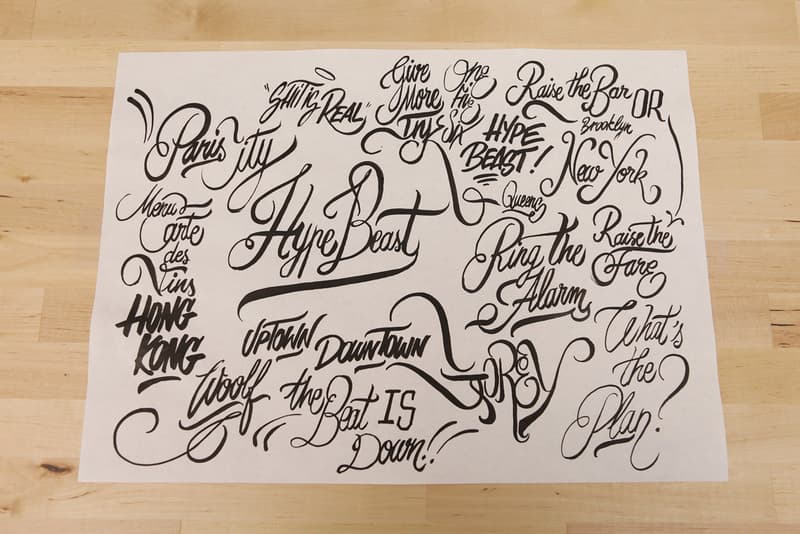 "SHIT IS REAL"
Give
More
Try
One
in the
Six
Raise the Bar
OR
Brooklyn
HYPE
BEAST!
New York
Paris City
Queens
Menu
Carte
des
Vins
Hype Beast
Ring the
Alarm
Raise the
Fare
HONG
KONG
UPTOWN
DOWNTOWN
What's
the
Plan?
Woolf
the
Beat IS
Down!!